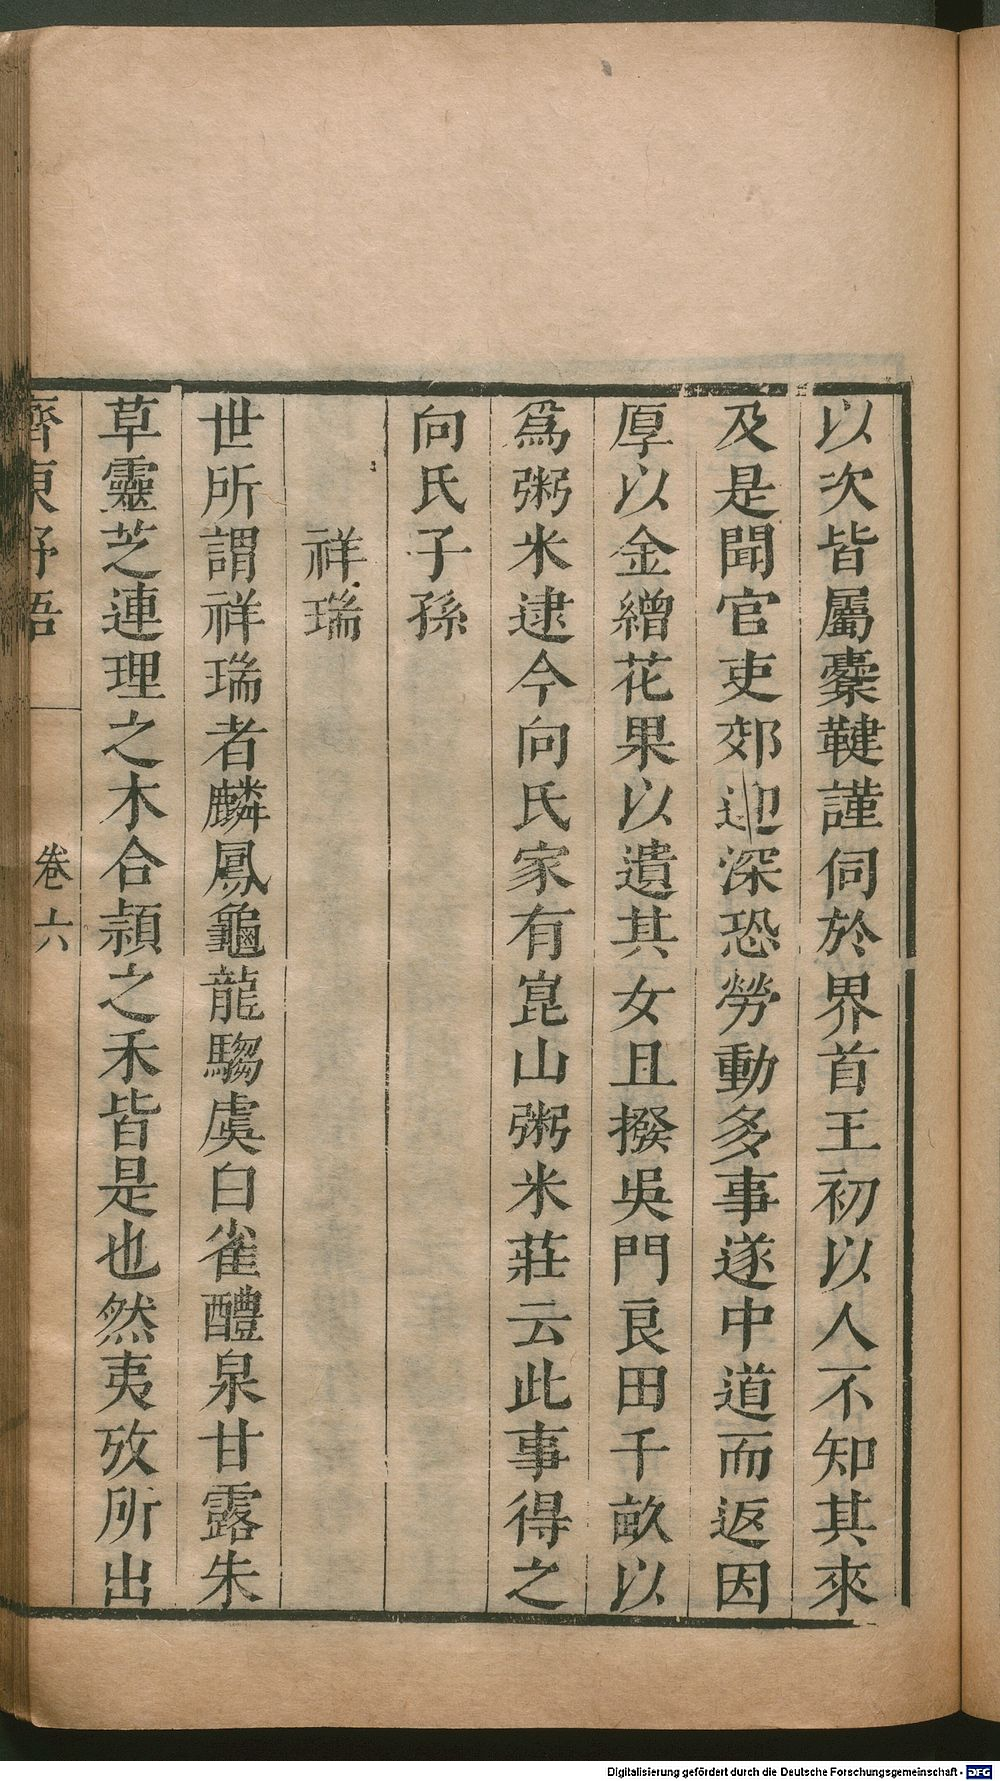 以次皆屬櫜鞬謹伺於界首王初以人不知其來
及是聞官吏郊迎深恐勞動多事遂中道而返因
厚以金繒花果以遺其女且撥吳門良田千畝以
爲粥米逮今向氏家有崑山粥米莊云此事得之
向氏子孫
祥瑞
世所謂祥瑞者麟鳳龜龍騶虞白雀醴泉甘露朱
草靈芝連理之木合穎之禾皆是也然夷攷所出
齊東野語
卷六
Digitalisierung gefördert durch die Deutsche Forschungsgemeinschaft - DFG